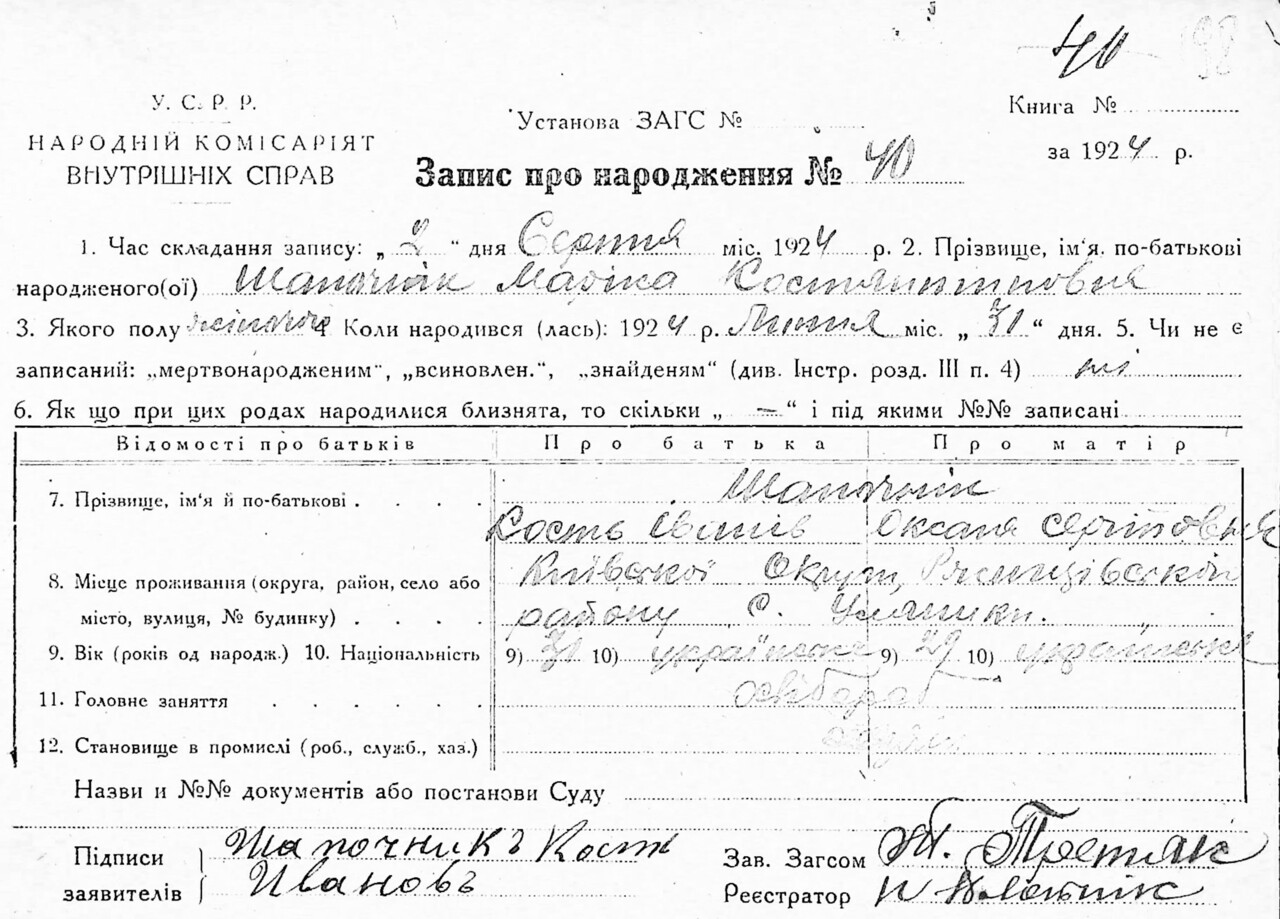 40
У. С. Р. Р.
НАРОДНІЙ КОМІСАРІЯТ
ВНУТРІШНІХ СПРАВ
Установа ЗАГС №
Книга №
за 1924 р.
Запис про народження № 40
1. Час складання запису: „ 2 “ дня Серпня міс. 1924 р. 2. Прізвище, ім'я. по-батькові
народженого(ої) Шапочнік Марія Костянтиновна
3. Якого полу жіночого 4 Коли народився (лась): 1924 р. Липня міс. „ 31 “ дня. 5. Чи не є
записаний: „мертвонародженим“, „всиновлен.“, „знайденям“ (див. Інстр. розд. III п. 4) ні
6. Як що при цих родах народилися близнята, то скільки „ — “ і під якими №№ записані
Відомості про батьків Про батька Про матір
7. Прізвище, ім'я й по-батькові . . . . Шапочнік
Кость Іванів Оксана
8. Місце проживання (округа, район, село або Київської Округи,
місто, вулиця, № будинку) . . . . району С. Уляники.
9. Вік (років од народж.) 10. Національність 9) 31 10) українська 9) 29 10) українська
11. Головне заняття . . . . . .
12. Становище в промислі (роб., служб., хаз.)
Назви и №№ документів або постанови Суду
Підписи
заявителів
Шапочникъ Кост
Ивановъ
Зав. Загсом Третяк
Реєстратор